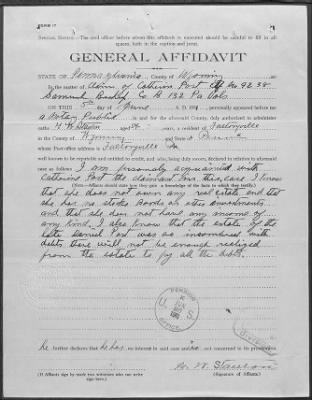 GENERAL AFFIDAVIT
STATE OF Pennsylvania County of Wyoming
In the matter of Claim of Catherine Post No 92238
Samuel Co A 132 Pa Vols
ON THIS 5th day of June A. D. 191 personally appeared before me
a Notary Public in and for the aforesaid County, duly authorized to administer
oaths H. W. aged a resident of Factoryville
in the County of Wyoming and State of Penna
whose Post-office address is Factoryville Pa
well known to be reputable and entitled to credit, and who, being duly sworn, declared in relation to aforesaid
case as follows I am personally acquainted with
Catherine Post the claimant in this case. I know
(Note.—Affiants should state how they gain a knowledge of the facts to which they testify.)
that she does not own any real estate and that
she has no stocks bonds or other investments
and that she has not have any income of
any kind. I also know that the estate of the
late Samuel Post was so incumbered with
debts there will not be enough realized
from the estate to pay all the debts.
PENSION
U. S.
OFFICE
he further declares that he has no interest in said case and is not concerned in its prosecution.
(If Affiants sign by mark two witnesses who can write sign here.)
(Signature of Affiants.)